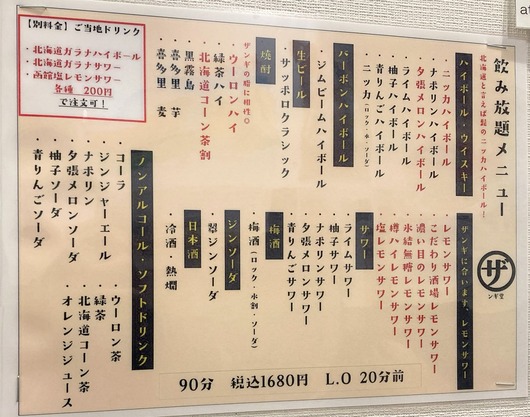 飲み放題メニュー
北海道と言えば髭のニッカハイボール!
ハイボール・ウイスキー
・ニッカハイボール
・ナポリンハイボール
・夕張メロンハイボール
・ライムハイボール
・柚子ハイボール
・青りんごハイボール
・ニッカ(ロック・水・ソーダ)
バーボンハイボール
・ジムビームハイボール
生ビール
・サッポロクラシック
焼酎
ザンギの脂に相性◎
・ウーロンハイ
・緑茶ハイ
・北海道コーン茶割
・黒霧島
・喜多里 芋
・喜多里 麦
【別料金】ご当地ドリンク
・北海道ガラナハイボール
・北海道ガラナサワー
・函館塩レモンサワー
各種 200円
で注文可!
ザ
ンギ堂
ザンギに合います、レモンサワー
・レモンサワー
・こだわり酒場レモンサワー
・濃いめのレモンサワー
・氷結無糖レモンサワー
・樽ハイレモンサワー
・塩レモンサワー
サワー
・ライムサワー
・柚子サワー
・ナポリンサワー
・夕張メロンサワー
・青りんごサワー
梅酒
・梅酒(ロック・水割・ソーダ)
ジンソーダ
・翠ジンソーダ
日本酒
・冷酒・熱燗
ノンアルコール・ソフトドリンク
・コーラ
・ジンジャーエール
・ナポリン
・夕張メロンソーダ
・柚子ソーダ
・青りんごソーダ
・ウーロン茶
・緑茶
・北海道コーン茶
・オレンジジュース
90分 税込1680円 L.O 20分前
at